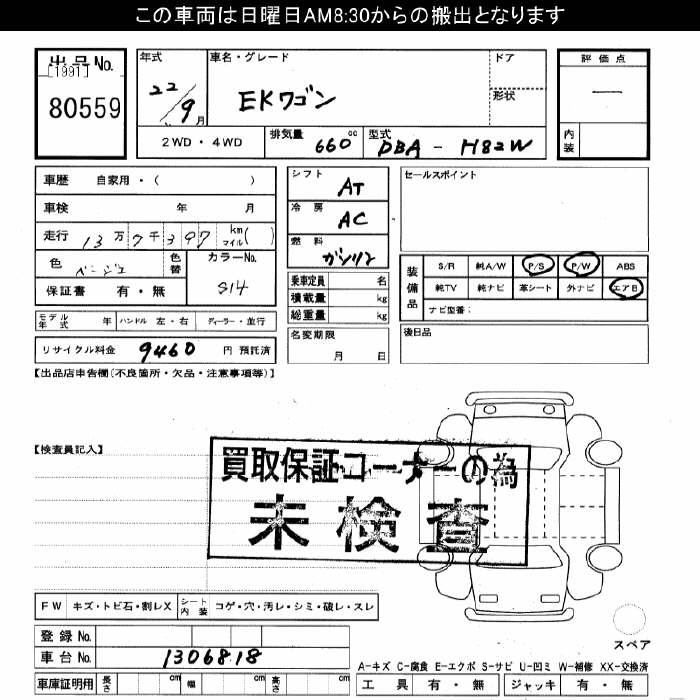 この車両は日曜日AM8:30からの搬出となります
出品No.
[1991]
80559
年式
22/9月
車名・グレード
EKワゴン
ドア
形状
評価点
—
内装
2WD・4WD
排気量 660cc
型式 DBA-H82W
車歴 自家用・(　　　)
車検 年 月
走行 13万7千397 km マイル( )
色 ベージュ 色替
カラーNo. S14
保証書 有・無
シフト AT
冷房 AC
燃料 ガソリン
乗車定員 名
積載量 kg
総重量 kg
セールスポイント
装備品
S/R 純A/W P/S P/W ABS
純TV 純ナビ 革シート 外ナビ エアB
ナビ型番:
モデル年式 年 ハンドル 左・右 ディーラー・並行
名変期限
月 日
後日品
リサイクル料金 9460 円 預託済
【出品店申告欄(不良箇所・欠品・注意事項等)】
【検査員記入】
買取保証コーナーの為
未検査
FW キズ・トビ石・割レX シート内装 コゲ・穴・汚レ・シミ・破レ・スレ
スペア
登録No.
車台No. 1306818
A-キズ C-腐食 E-エクボ S-サビ U-凹ミ W-補修 XX-交換済
車庫証明用 長さ cm 幅 cm 高さ cm
工具 有・無 ジャッキ 有・無